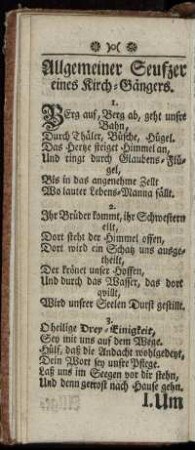 )o(
Allgemeiner Seufzer
eines Kirch-Gängers.
1.
BErg auf, Berg ab, geht unsre
Bahn,
Durch Thäler, Büsche, Hügel.
Das Hertze steiget Himmel an,
Und ringt durch Glaubens-Flü-
gel,
Bis in das angenehme Zelt
Wo lauter Lebens-Manna fällt.
2.
Ihr Brüder kommt, ihr Schwestern
eilt,
Dort steht der Himmel offen,
Dort wird ein Schatz uns ausge-
theilt,
Der krönet unser Hoffen,
Und durch das Wasser, das dort
qvillt,
Wird unsrer Seelen Durst gestillt.
3.
O heilige Drey-Einigkeit,
Sey mit uns auf dem Wege.
Hülf, daß die Andacht wohlgedeyt,
Dein Wort sey unsre Pflege.
Laß uns im Seegen vor dir stehn,
Und denn getrost nach Hause gehn.
I. Um